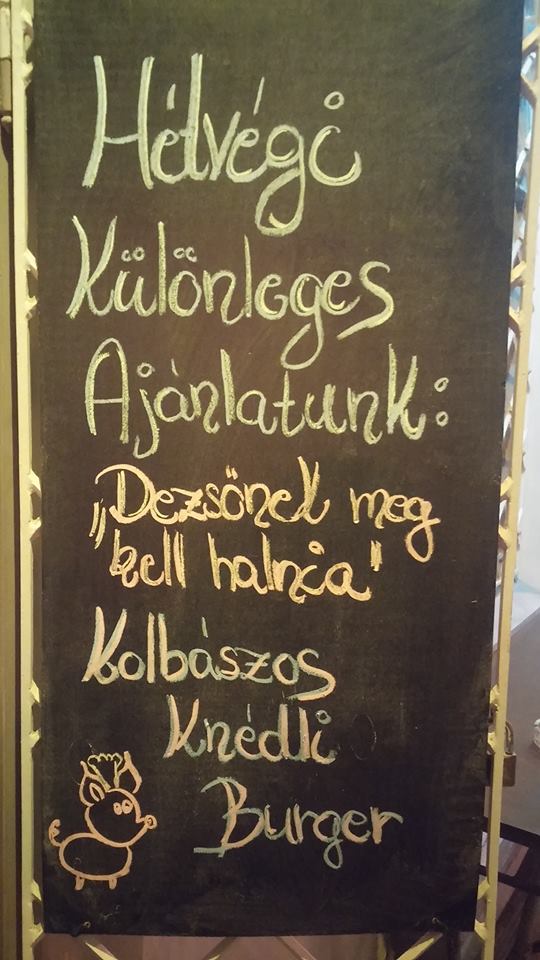 Hétvégi
Különleges
Ajánlatunk:
„Dezsőnek meg
kell halnia"
Kolbászos
Knédli
Burger